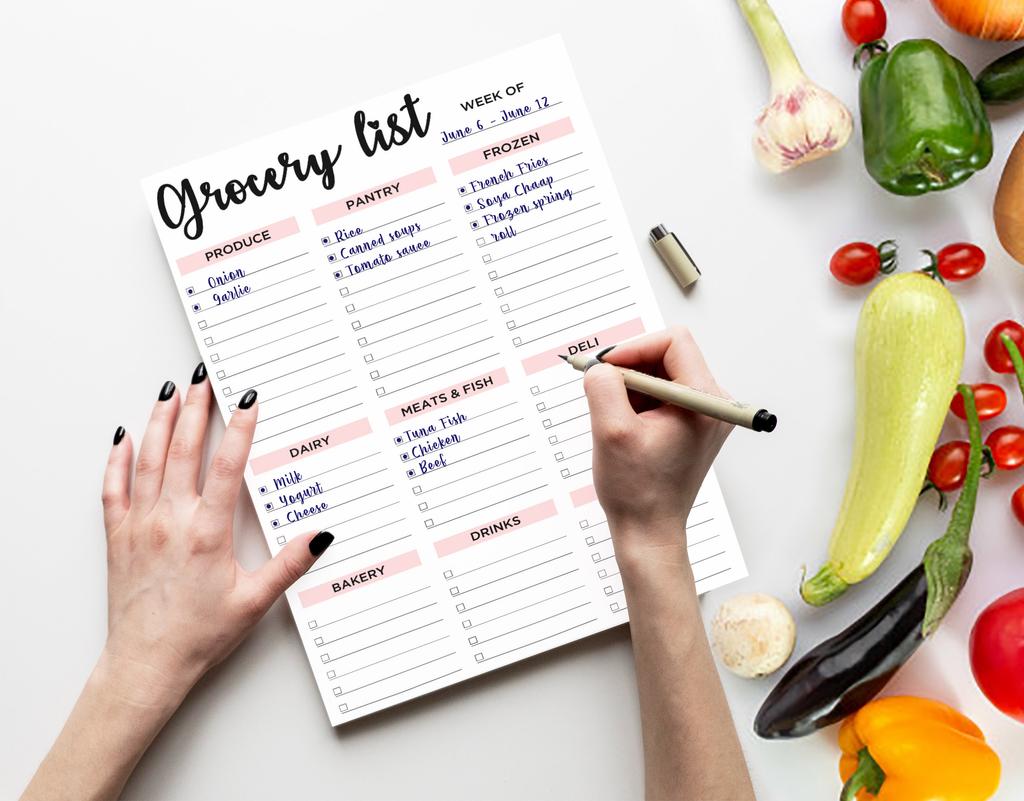 Grocery list
WEEK OF
June 6 - June 12
PRODUCE
Onion
Garlic
PANTRY
Rice
Canned soups
Tomato sauce
FROZEN
French Fries
Soya Chaap
Frozen spring
roll
DAIRY
Milk
Yogurt
Cheese
MEATS & FISH
Tuna Fish
Chicken
Beef
DELI
BAKERY
DRINKS